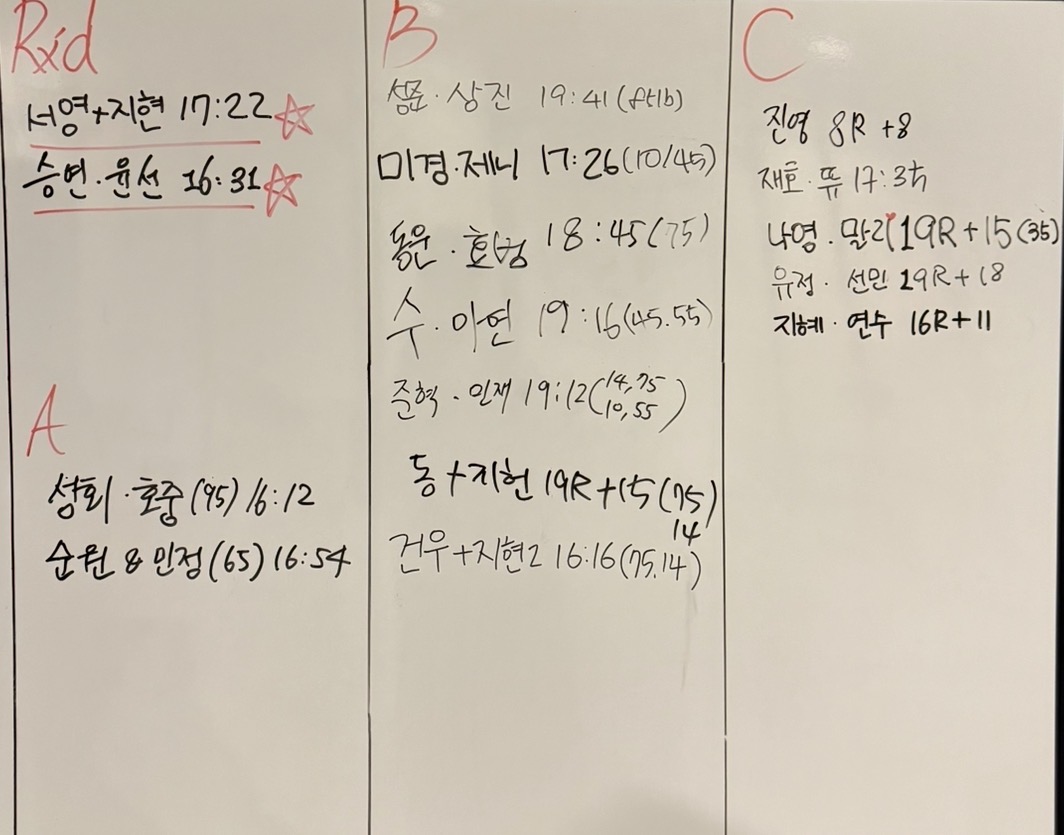 Rxd
서영+지현 17:22
승연·윤선 16:31
A
성회·호중 (95) 16:12
순원 & 민정 (65) 16:54
B
성준·상진 19:41
미경·제니 17:26 (10/45)
동운·효범 18:45 (75)
수·이연 19:16 (45.55)
준혁·인재 19:12 (14,75
10,55)
동+지헌 19R+15 (75)
14
건우+지현2 16:16 (75.14)
C
진영 8R +8
재호·뜌 17:35
나영·말리 19R+15 (35)
유정·선민 19R+18
지혜·연수 16R+11